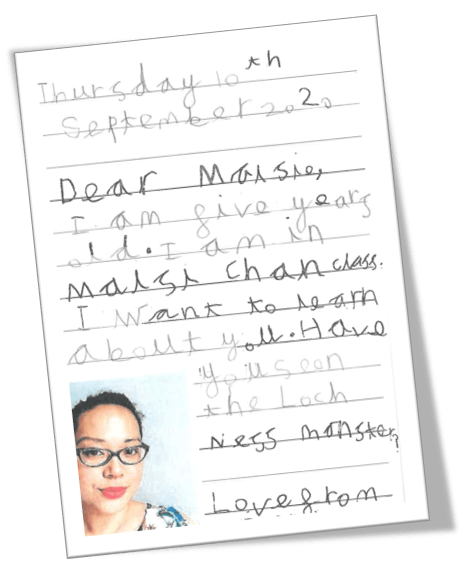 Thursday 10th
September 2020
Dear Maisie,
I am five years
old. I am in
Maisi Chan class.
I want to learn
about you. Have
you seen
the Loch
Ness monster?
Love from